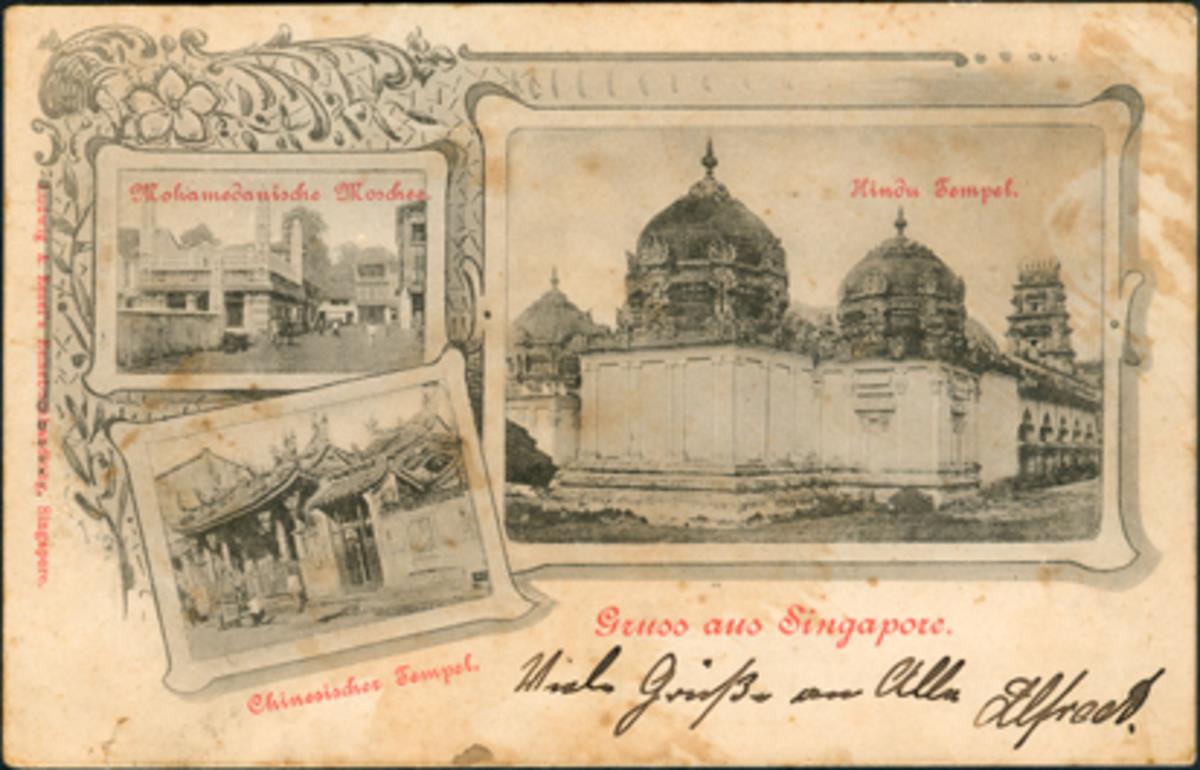 Mohamedanische Moschee.
Hindu Tempel.
Chinesischer Tempel.
Gruss aus Singapore.
Viele Grüße an Alle Alfred.
Singapore.